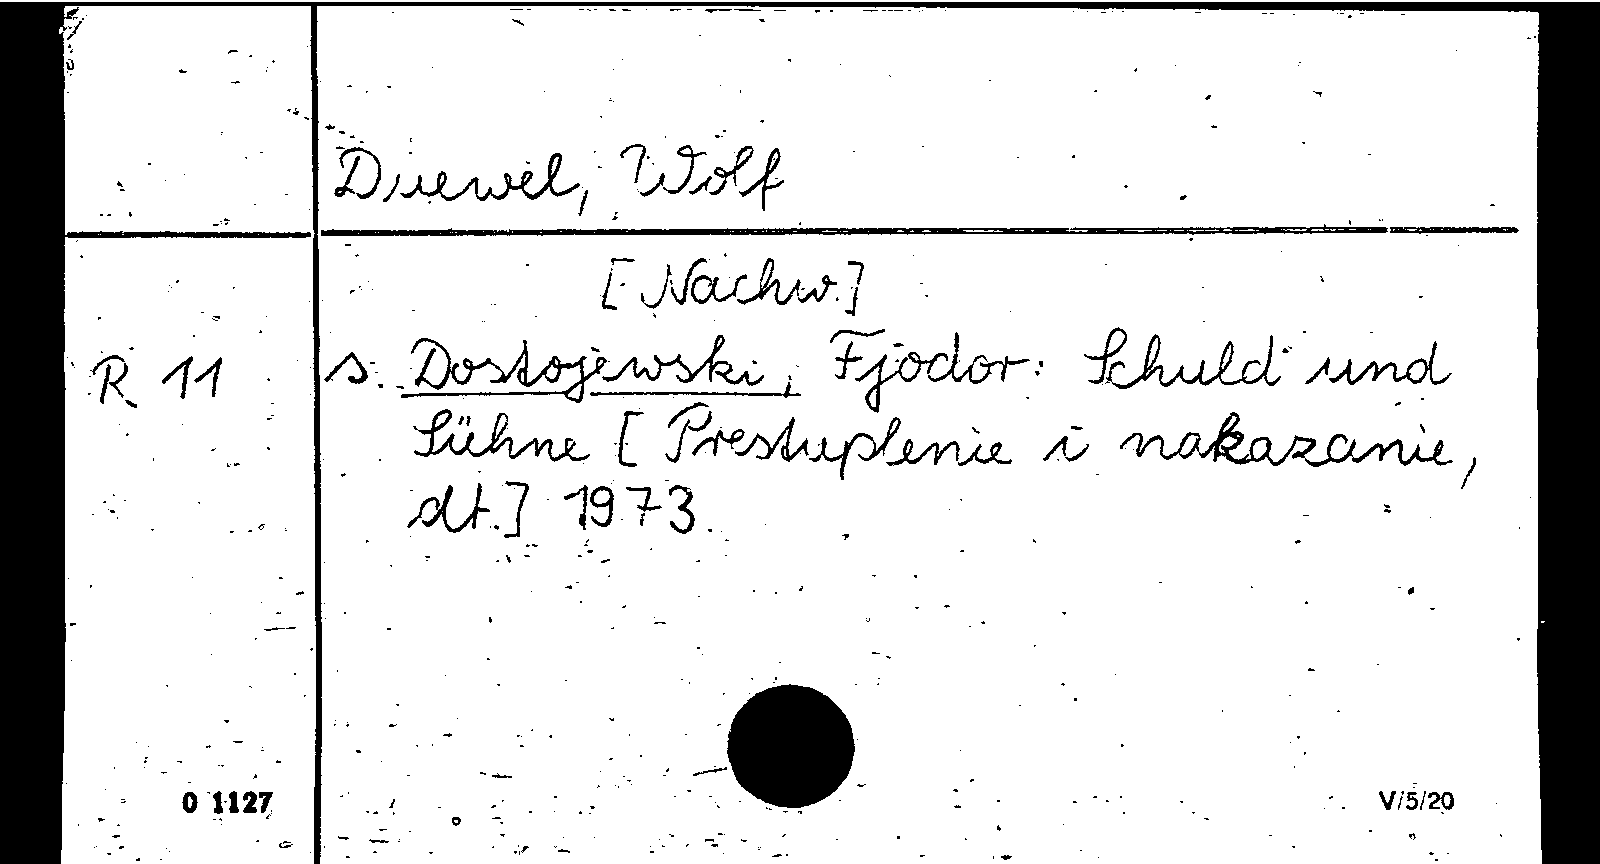 Duewel, Wolf
[Nachw.]
R 11 s. Dostojewski, Fjodor: Schuld und
Sühne [Prestuplenie i nakazanie,
dt.] 1973.
O 1127 V/5/20